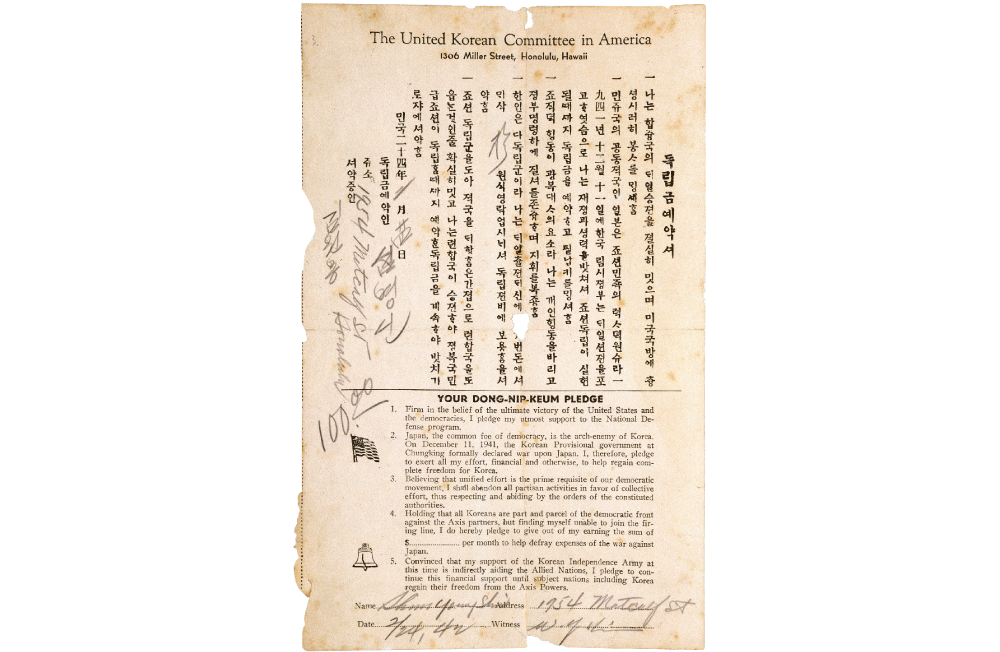 The United Korean Committee in America
1306 Miller Street, Honolulu, Hawaii
독립금예약셔
一 나는 합즁국의 뎌일승젼을 졀실히 밋으며 미국국방에 츙
셩시러히 봉ᄉᆞ를 밍셰홈
一 민쥬국의 공동젹국인 일본은 죠션민죡의 력ᄉᆞ뎍원슈라 一
九四一년 十二월 十一일에한국 림시졍부는 뎌일션젼을포
고ᄒᆞ엿슴으로 나는 재졍과셩력을밧쳐셔 죠션독립이 실현
될때까지 독립금을 예약ᄒᆞ고 필납키를밍셔홈
一 죠직뎍 힝동이 광복대ᄉᆞ의요소라 나는 개인힝동을바리고
졍부명령하에 질셔를존즁ᄒᆞ며 지휘를복죵홈
一 한인은 다독립군이라 나는 뎌일츌젼뎌신에 번돈에셔
미삭 원식영락업시ᄂᆡ셔 독립젼비에 보용홈을셔
약홈
一 죠션 독립군을도아 젹국을 뎌학홈은간졉으로 련합국을도
읍는것인줄 확실히밋고 나는련합국이 승젼ᄒᆞ야 졍복국민
급죠션이 독립홀때까지 예약ᄒᆞᆫ독립금을 계속ᄒᆞ야 밧치기
로쟈에셔약홈
민국二十四年 月 日
독립금예약인
쥬소 1954 Metcalf St Honolulu
셔약증인
YOUR DONG-NIP-KEUM PLEDGE
1. Firm in the belief of the ultimate victory of the United States and
the democracies, I pledge my utmost support to the National De-
fense program.
2. Japan, the common foe of democracy, is the arch-enemy of Korea.
On December 11, 1941, the Korean Provisional government at
Chungking formally declared war upon Japan. I, therefore, pledge
to exert all my effort, financial and otherwise, to help regain com-
plete freedom for Korea.
3. Believing that unified effort is the prime requisite of our democratic
movement, I shall abandon all partisan activities in favor of collective
effort, thus respecting and abiding by the orders of the constituted
authorities.
4. Holding that all Koreans are part and parcel of the democratic front
against the Axis partners, but finding myself unable to join the fir-
ing line, I do hereby pledge to give out of my earning the sum of
$........................ per month to help defray expenses of the war against
Japan.
5. Convinced that my support of the Korean Independence Army at
this time is indirectly aiding the Allied Nations, I pledge to con-
tinue this financial support until subject nations including Korea
regain their freedom from the Axis Powers.
Name Address 1954 Metcalf St
Date 2/24, 42 Witness